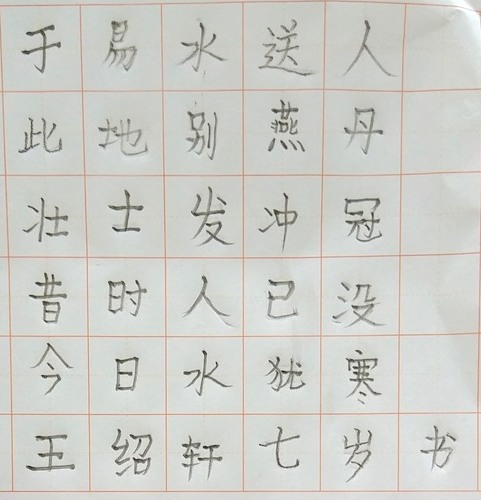 于易水送人
此地别燕丹
壮士发冲冠
昔时人已没
今日水犹寒
王绍轩七岁书